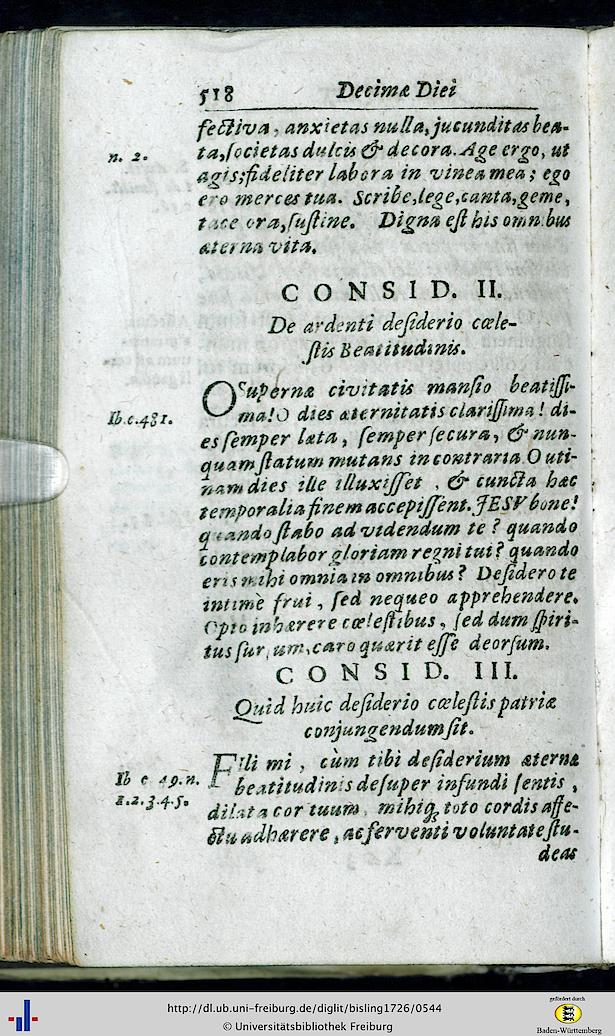 518 Decimæ Diei
fectiva, anxietas nulla, jucunditas bea-
n. 2. ta, societas dulcis & decora. Age ergo, ut
agis; fideliter labora in vinea mea; ego
ero merces tua. Scribe, lege, canta, geme,
tace ora, sustine. Digna est his omnibus
æterna vita.
CONSID. II.
De ardenti desiderio cœle-
stis Beatitudinis.
O Supernæ civitatis mansio beatissi-
Ib. c. 481. ma! O dies æternitatis clarissima! di-
es semper læta, semper secura, & nun-
quam statum mutans in contraria. O uti-
nam dies ille illuxisset, & cuncta hæc
temporalia finem accepissent. JESU bone!
quando stabo ad videndum te? quando
contemplabor gloriam regni tui? quando
eris mihi omnia in omnibus? Desidero te
intimè frui, sed nequeo apprehendere.
Opto inhærere cœlestibus, sed dum spiri-
tus sursum, caro quærit esse deorsum.
CONSID. III.
Quid huic desiderio cœlestis patriæ
conjungendum sit.
Fili mi, cùm tibi desiderium æternæ
Ib c 49. n. beatitudinis desuper infundi sentis,
1. 2. 3. 4. 5. dilata cor tuum, mihiq; toto cordis affe-
ctu adhærere, ac ferventi voluntate stu-
deas
http://dl.ub.uni-freiburg.de/diglit/bisling1726/0544
© Universitätsbibliothek Freiburg
gefördert durch
Baden-Württemberg